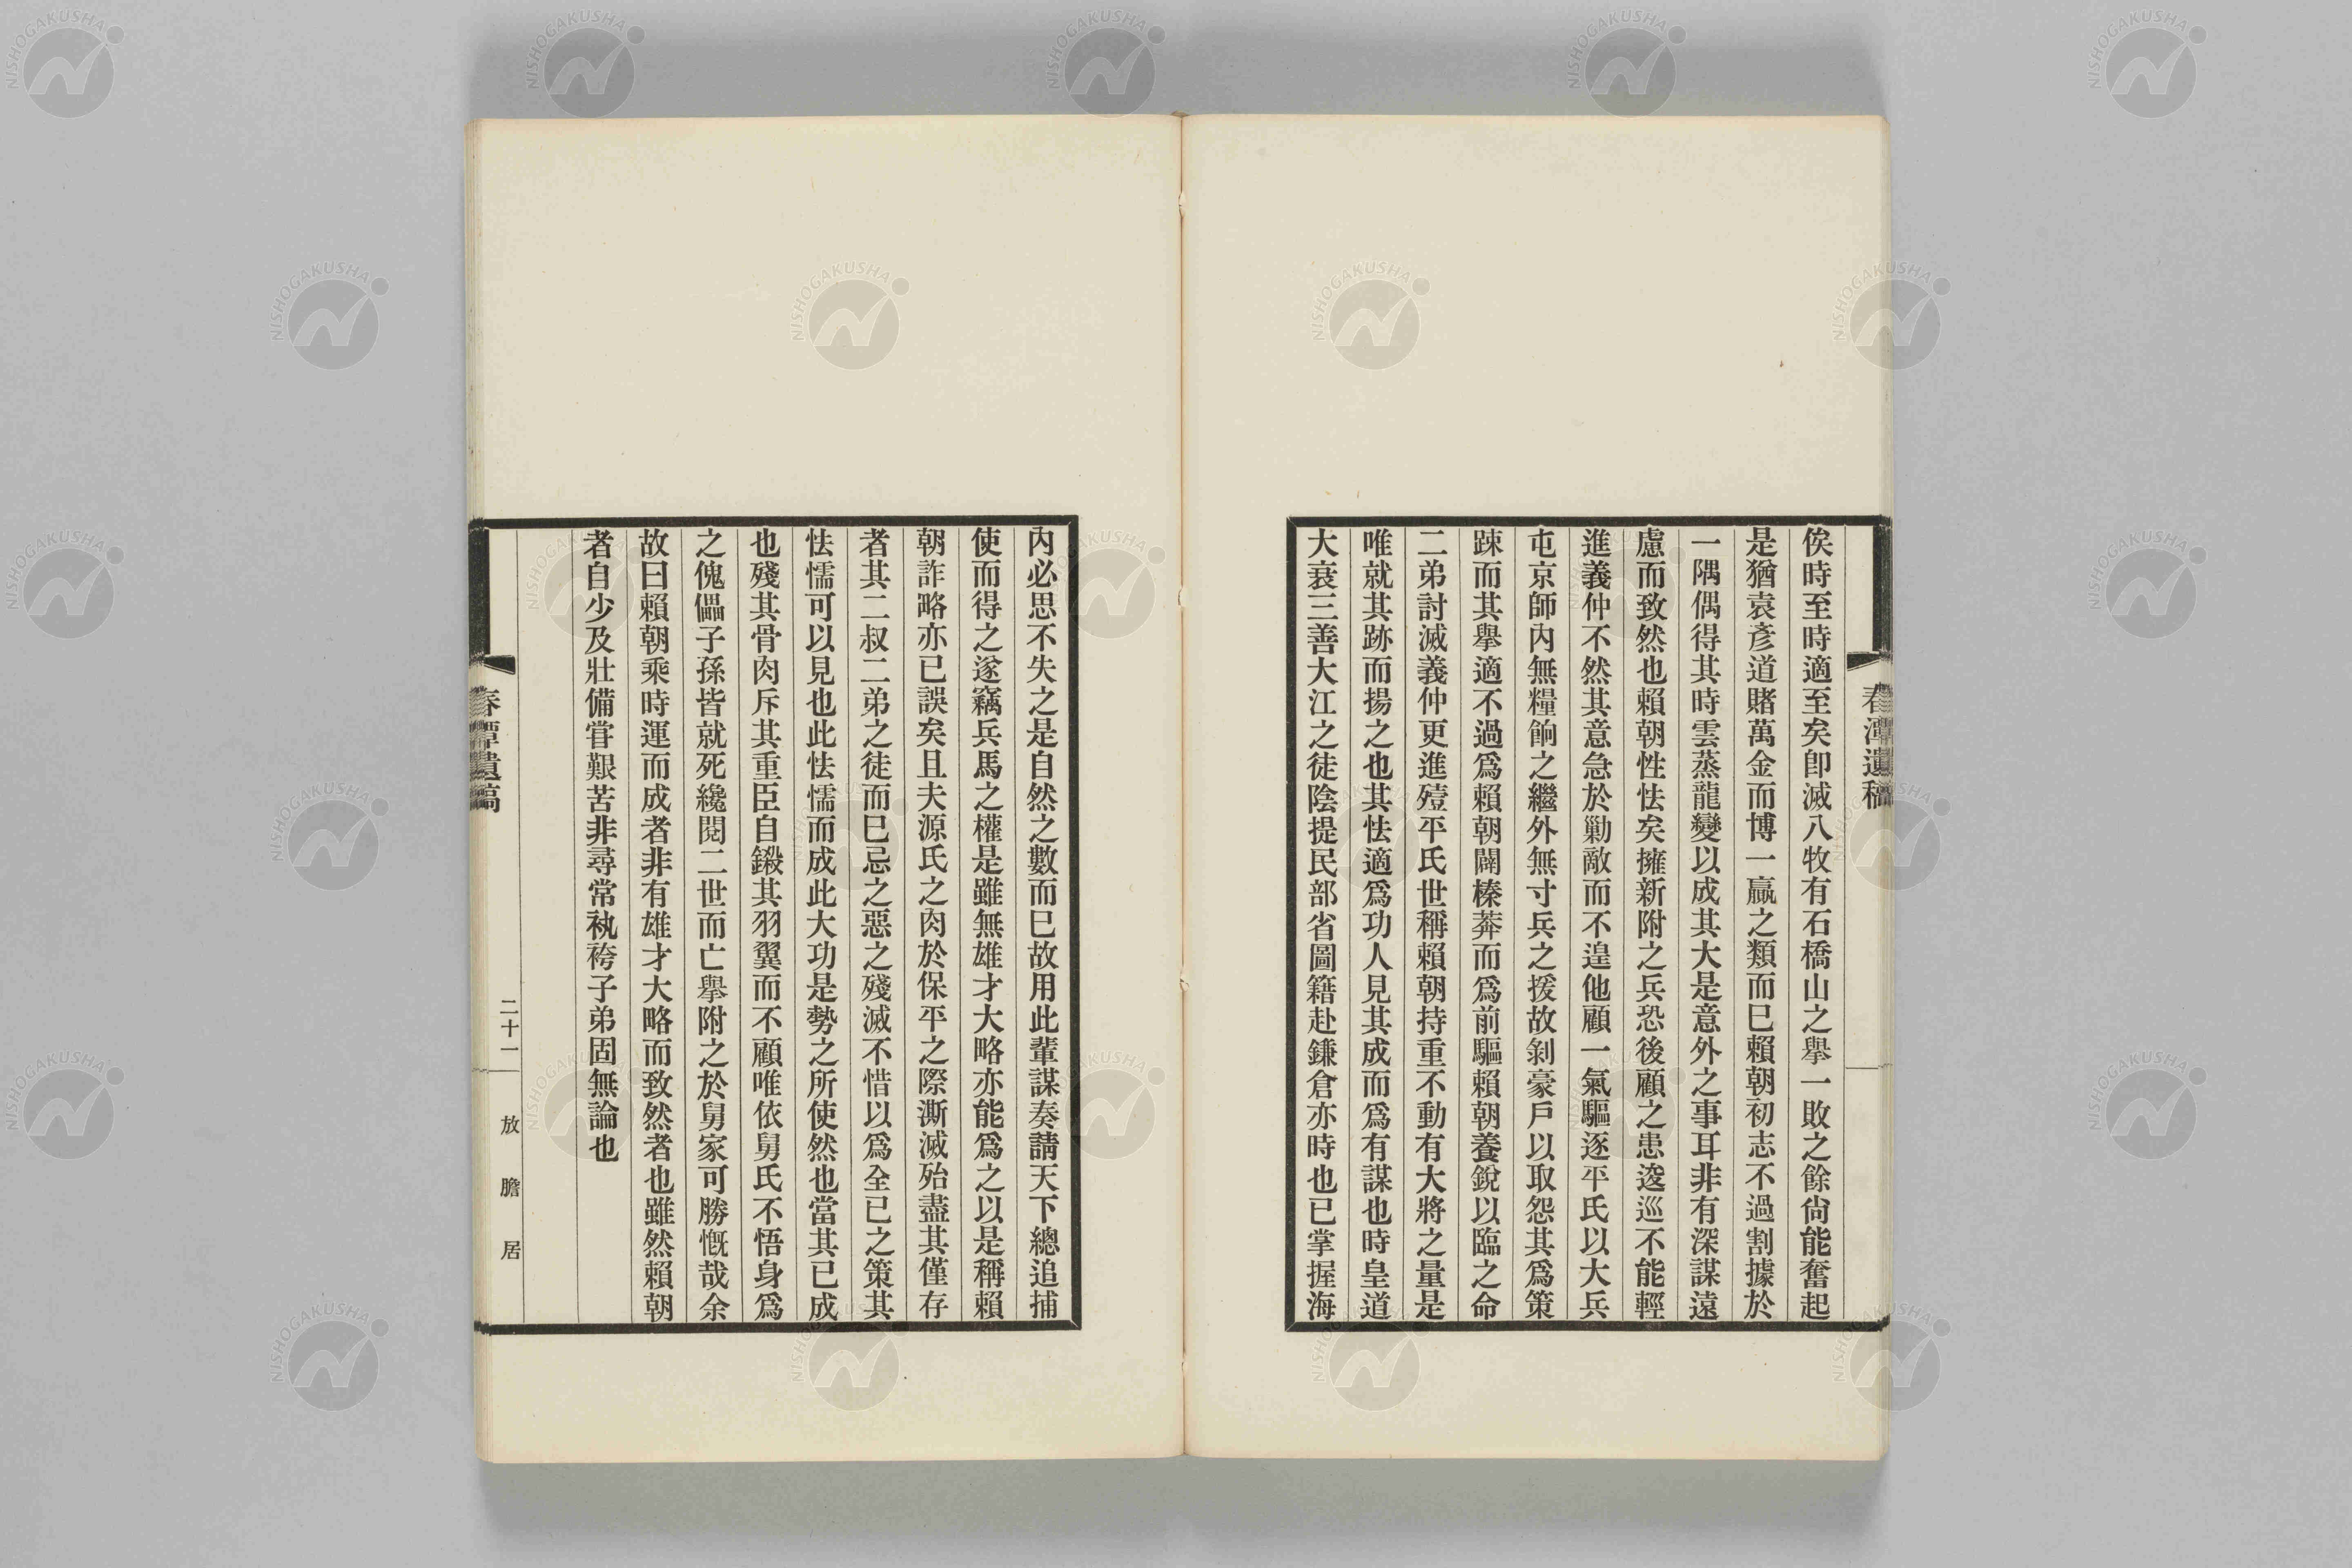 春潭遺稿
俟時至時適至矣卽滅八牧有石橋山之擧一敗之餘尙能奮起
是猶袁彥道賭萬金而博一贏之類而已賴朝初志不過割據於
一隅偶得其時雲蒸龍變以成其大是意外之事耳非有深謀遠
慮而致然也賴朝性怯矣擁新附之兵恐後顧之患逡巡不能輕
進義仲不然其意急於勦敵而不遑他顧一氣驅逐平氏以大兵
屯京師內無糧餉之繼外無寸兵之援故剝豪戶以取怨其爲策
踈而其擧適不過爲賴朝闢榛莽而爲前驅賴朝養銳以臨之命
二弟討滅義仲更進殪平氏世稱賴朝持重不動有大將之量是
唯就其跡而揚之也其怯適爲功人見其成而爲有謀也時皇道
大衰三善大江之徒陰提民部省圖籍赴鎌倉亦時也已掌握海
內必思不失之是自然之數而巳故用此輩謀奏請天下總追捕
使而得之遂竊兵馬之權是雖無雄才大略亦能爲之以是稱賴
朝詐略亦已誤矣且夫源氏之肉於保平之際澌滅殆盡其僅存
者其二叔二弟之徒而巳忌之惡之殘滅不惜以爲全已之策其
怯懦可以見也此怯懦而成此大功是勢之所使然也當其已成
也殘其骨肉斥其重臣自鎩其羽翼而不顧唯依舅氏不悟身爲
之傀儡子孫皆就死纔閱二世而亡擧附之於舅家可勝慨哉余
故曰賴朝乘時運而成者非有雄才大略而致然者也雖然賴朝
者自少及壯備甞艱苦非尋常紈袴子弟固無論也
春潭遺稿
二十一
放膽居